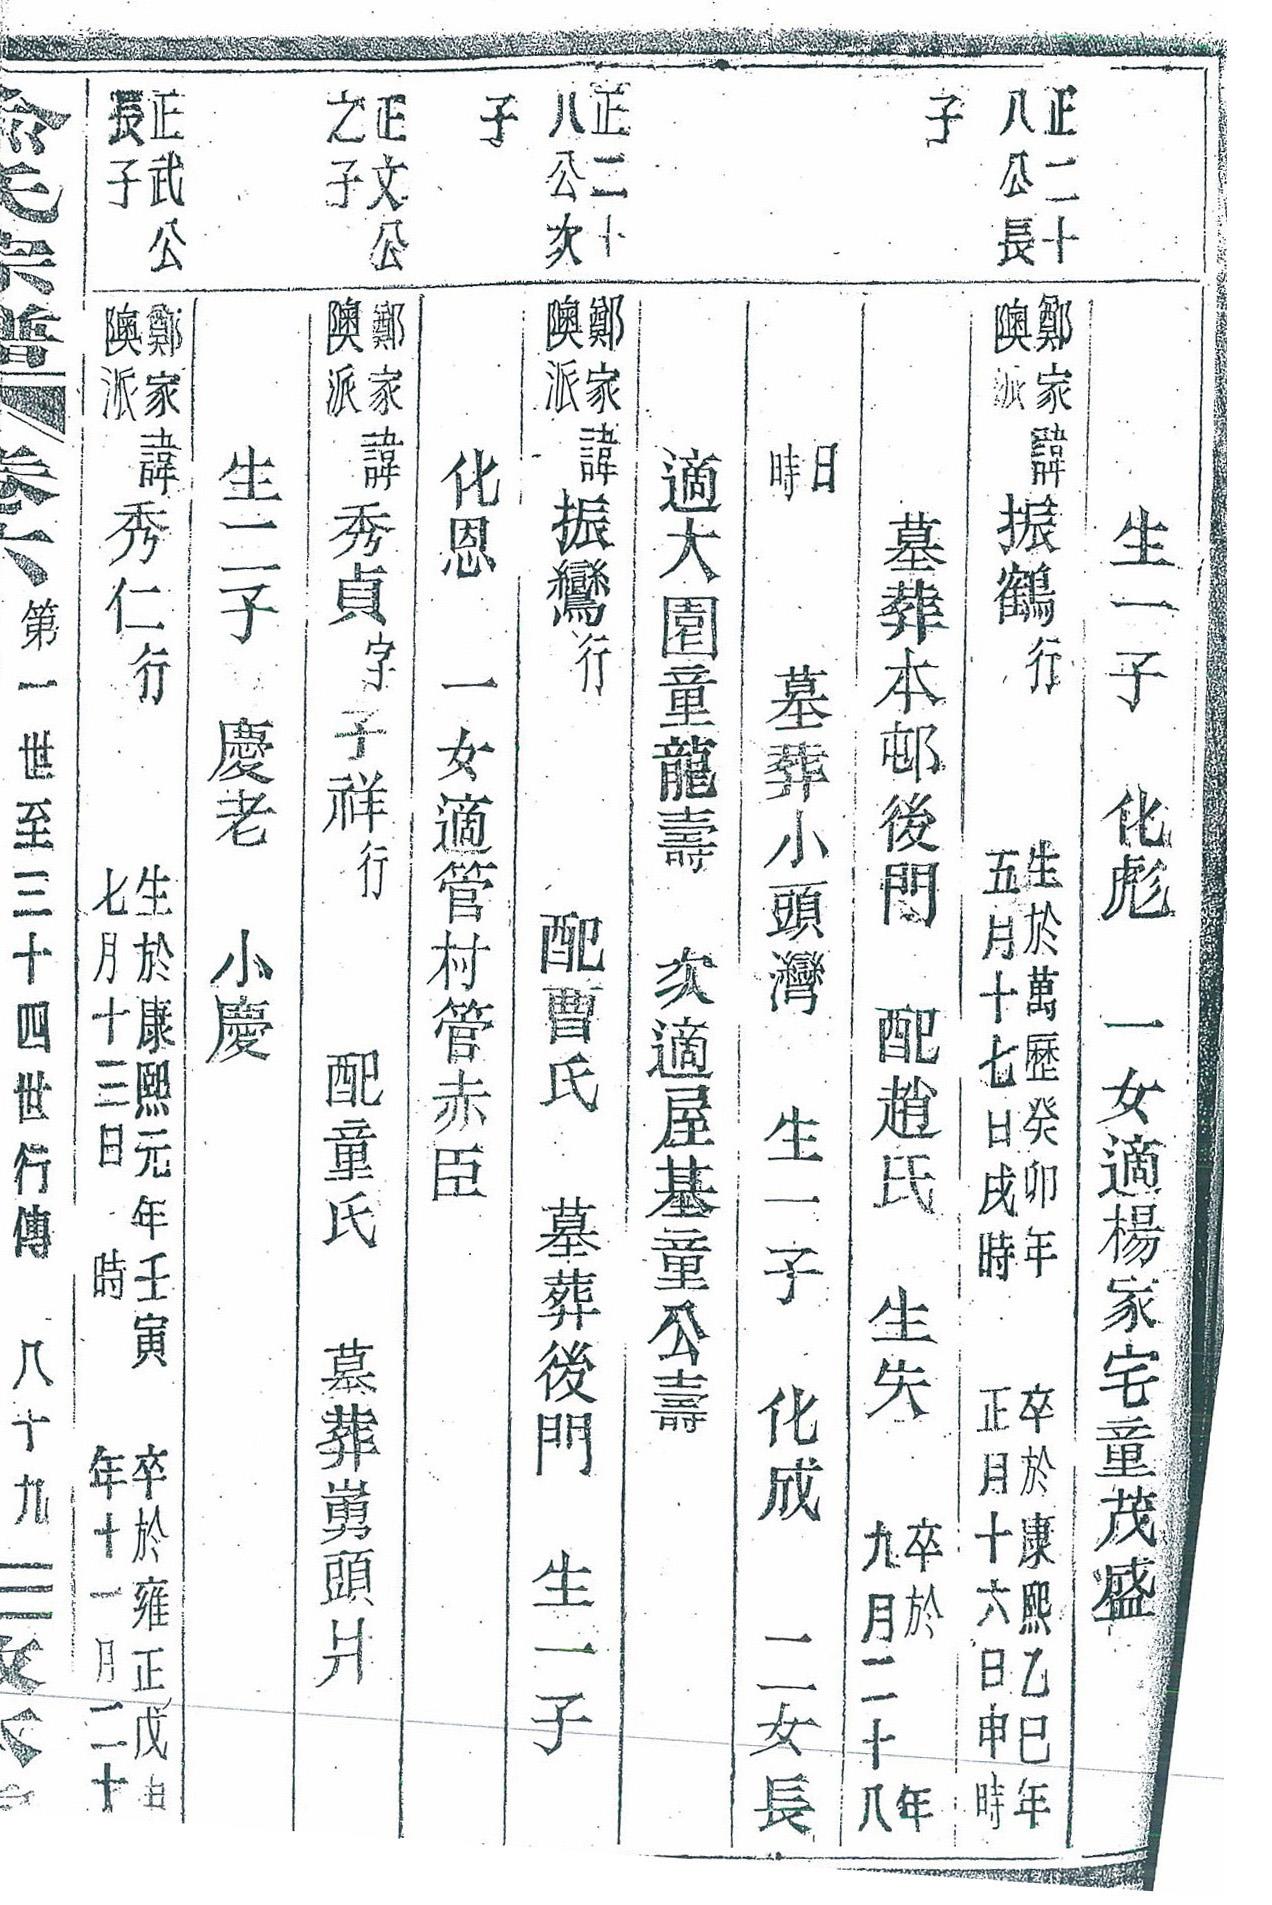 生一子 化彪 一女適楊家宅童茂盛
正二十八公長子
鄭家隩派 諱振鶴行 生於萬歷癸卯年五月十七日戌時 卒於康熙乙巳年正月十六日申時
墓葬本邨後門 配趙氏 生失 卒於 年九月二十八
日 時 墓葬小頭灣 生一子 化成 二女長
適大園童龍壽 次適屋基童公壽
正二十八公次子
鄭家隩派 諱振鸞行 配曹氏 墓葬後門 生一子
化恩 一女適管村管赤臣
正文公之子
鄭家隩派 諱秀貞字子祥行 配童氏 墓葬嵩頭爿
生二子 慶老 小慶
正武公長子
鄭家隩派 諱秀仁行 生於康熙元年壬寅七月十三日 時 卒於雍正戊申年十一月二十
俞氏宗譜 卷六 第一世至三十四世行傳 八十九